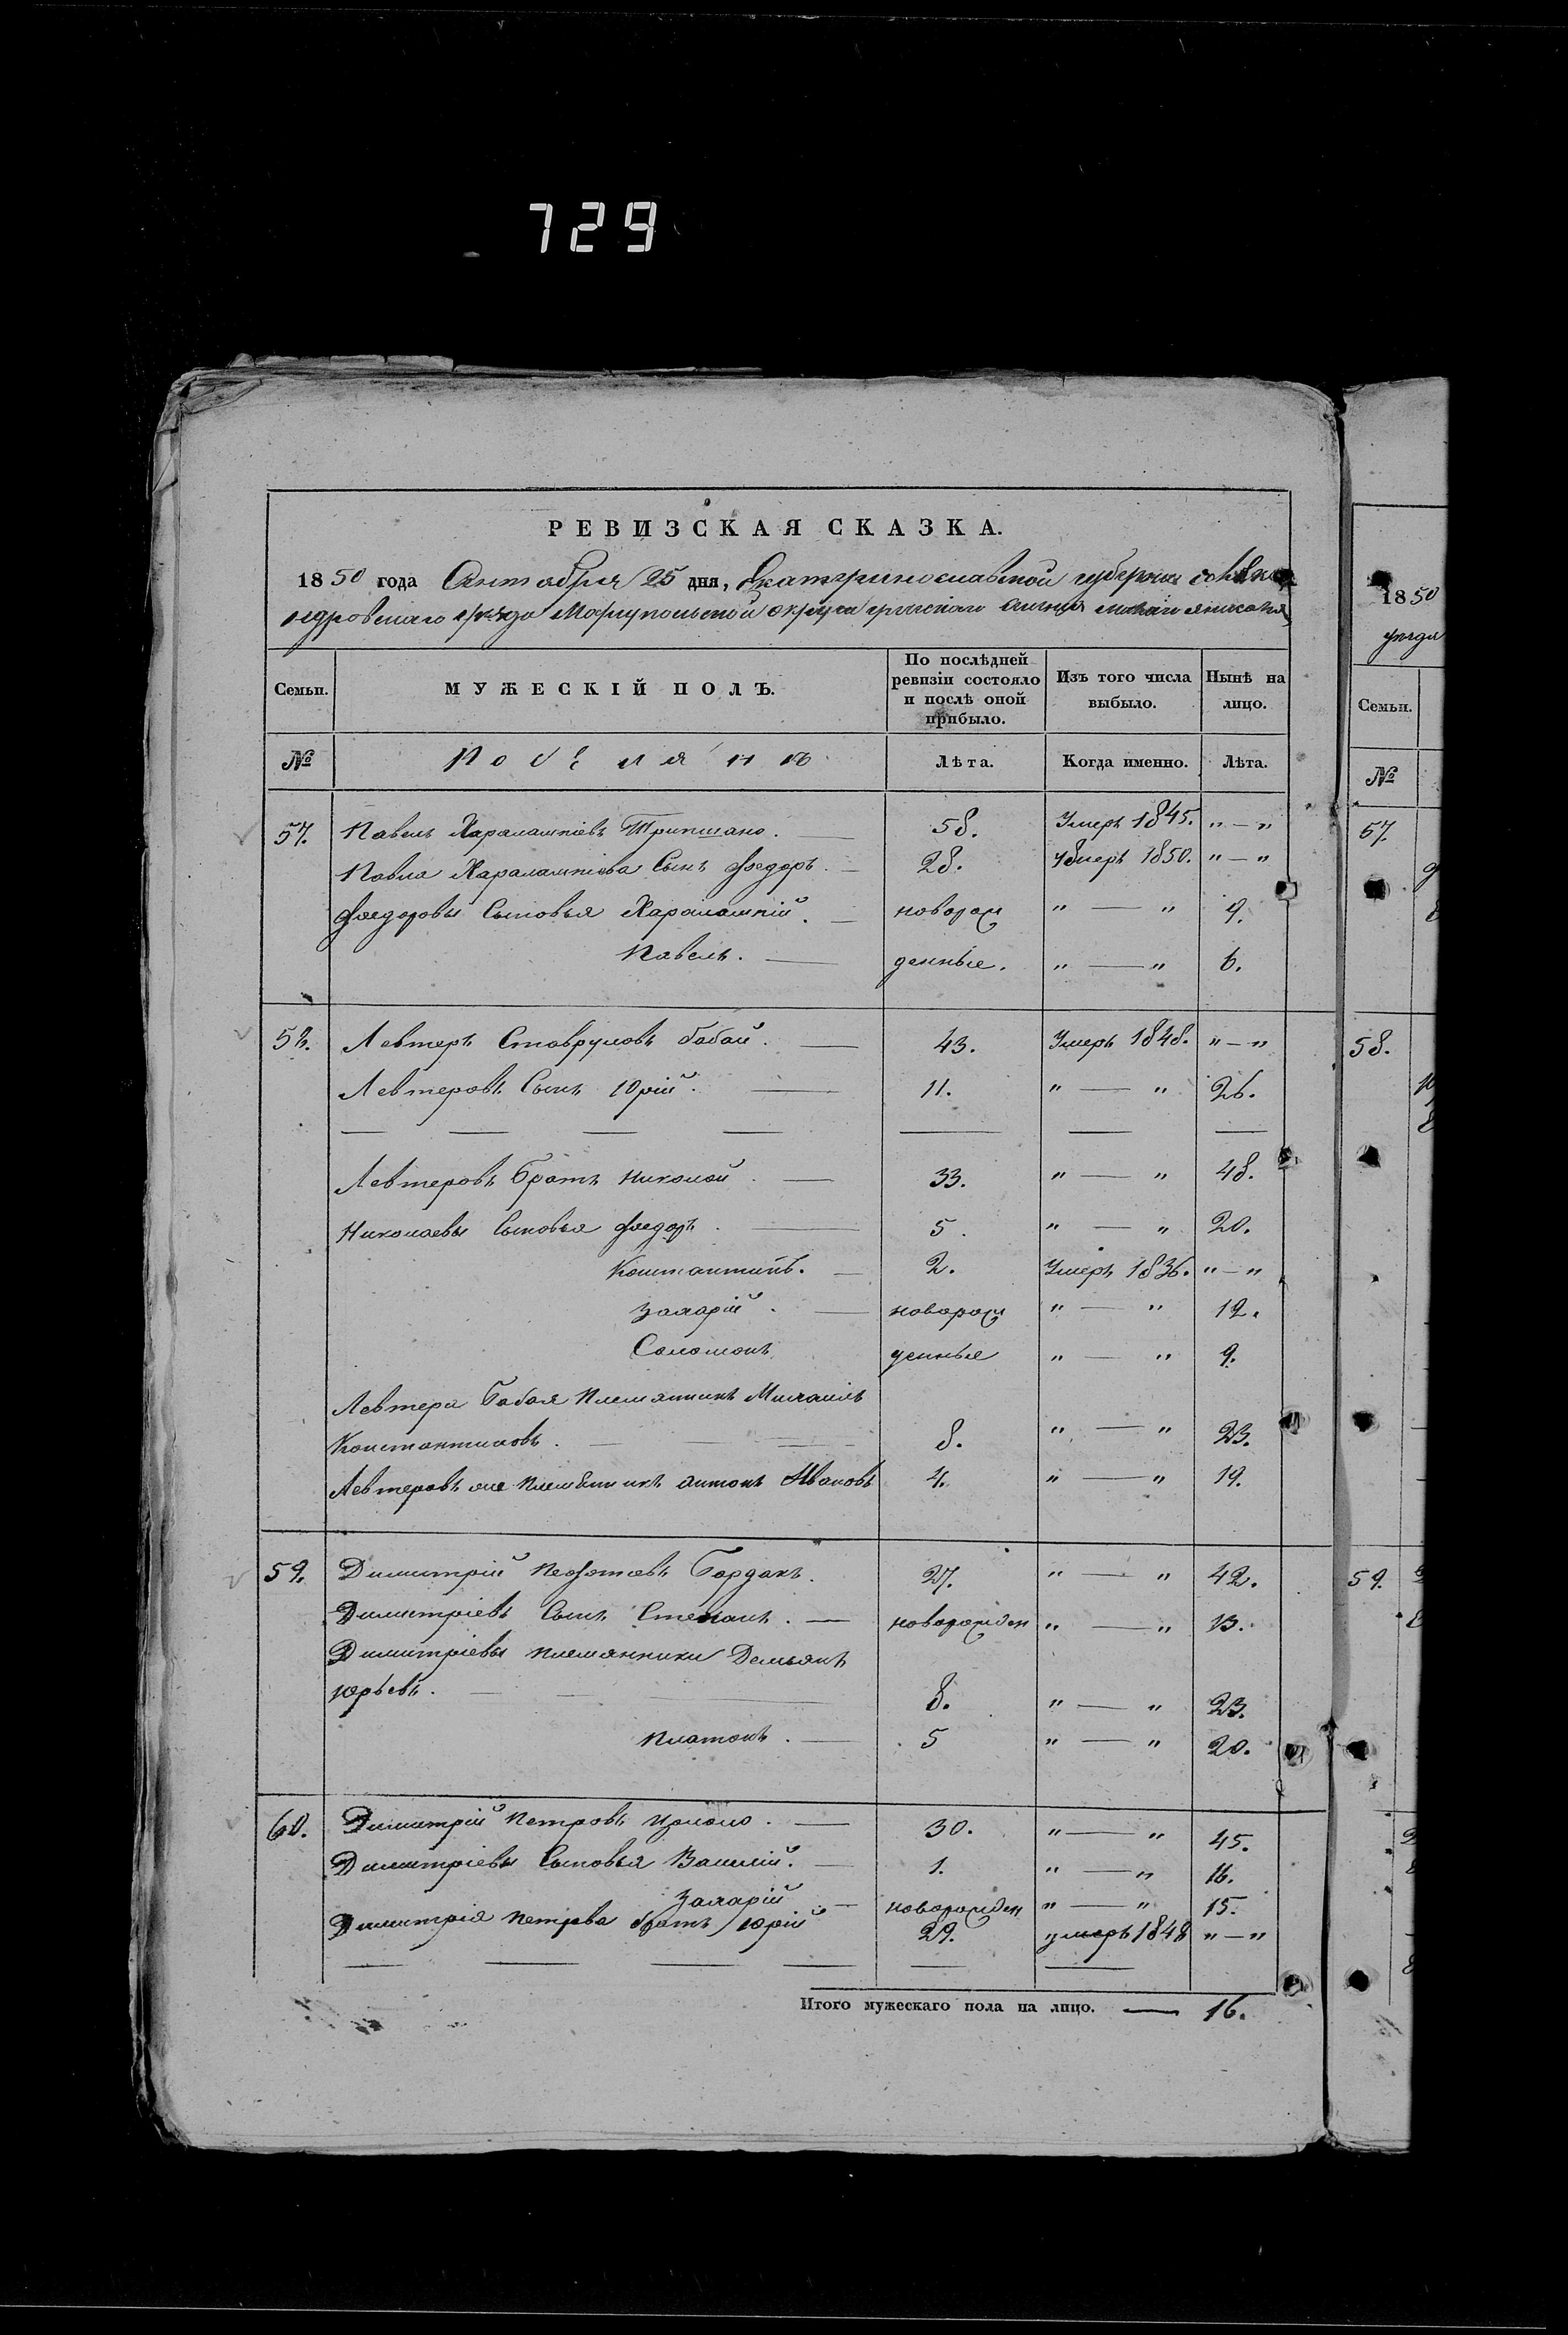 729
РЕВИЗСКАЯ СКАЗКА.
1850 года Октября 25 дня, Екатеринославской губернии
Мариупольской округи греческаго селения
Семьи. МУЖЕСКІЙ ПОЛЪ. По послѣдней ревизіи состояло и послѣ оной прибыло. Изъ того числа выбыло. Нынѣ на лицо.
№ Поселянъ Лѣта. Когда именно. Лѣта.
57. Павелъ Харалампіевъ 58. Умеръ 1845. „ — „
Павла Харалампіева Сынъ Федоръ. — 28. Умеръ 1850. „ — „
Федоровы Сыновья Харалампій. — новорож „ — „ 9.
Павелъ. — денные. „ — „ 6.
58. Левтеръ Ставруловъ бабай. — 43. Умеръ 1848. „ — „
Левтеровъ Сынъ Юрій. — 11. „ — „ 26.
Левтеровъ Братъ Николай. — 33. „ — „ 48.
Николаевы Сыновья Федоръ. — 5. „ — „ 20.
Константинъ. — 2. Умеръ 1836. „ — „
Захарій. — новорож „ — „ 12.
Соломонъ денные „ — „ 9.
Левтера Бабая племянникъ Михаилъ
Константиновъ. — 8. „ — „ 23.
Левтеровъ же племянникъ антонъ Ивановъ 4. „ — „ 19.
59. Димитрій Бардакъ. 27. „ — „ 42.
Димитріевъ Сынъ Степанъ. — новорожден „ — „ 13.
Димитріевы племянники Демьянъ
юрьевъ. — 8. „ — „ 23.
Платонъ. — 5 „ — „ 20.
60. Димитрій Петровъ — 30. „ — „ 45.
Димитріевы Сыновья Василій. — 1. „ — „ 16.
Захарій — новорожден „ — „ 15.
Димитрія Петрова братъ Юрій 29. умеръ 1848 „ — „
Итого мужескаго пола на лицо. — 16.
1850
уезда
Семьи.
№
57.
58.
59.